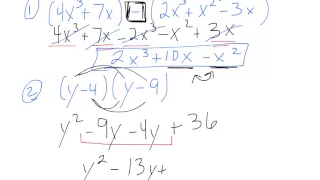 1) (4x³+7x) - (2x³+x²-3x)
4x³+7x-2x³-x²+3x
2x³+10x-x²
2) (y-4)(y-9)
y²-9y-4y+36
y²-13y+